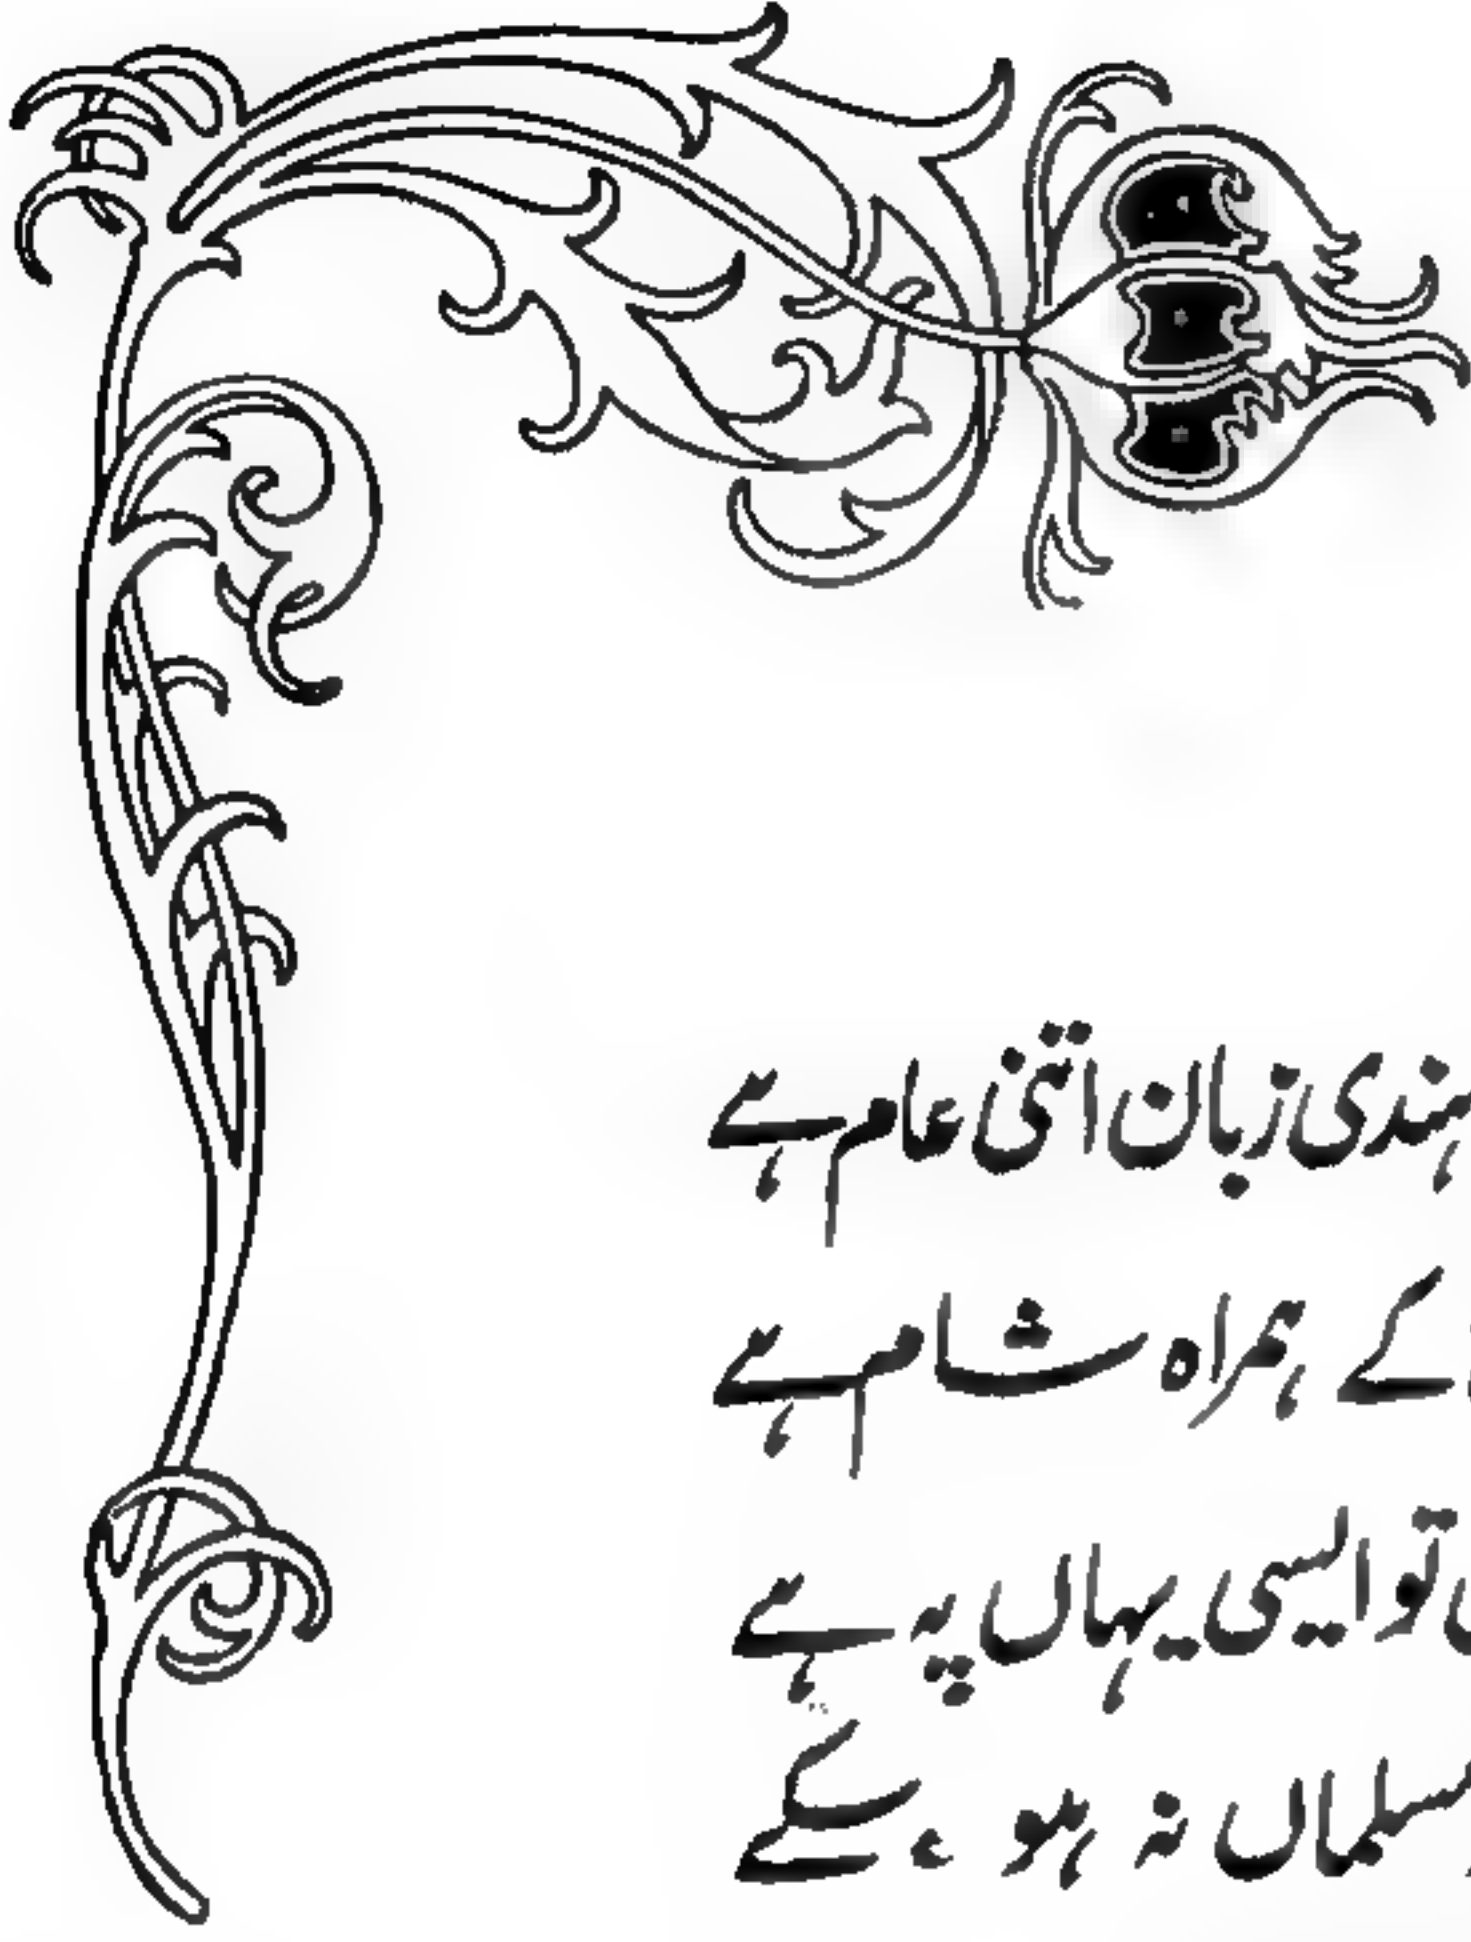 ہندی زبان اتنی عام ہے
کے ہمراہ شام ہے
تو ایسی یہاں پہ ہے
مسلماں نہ ہو سکے